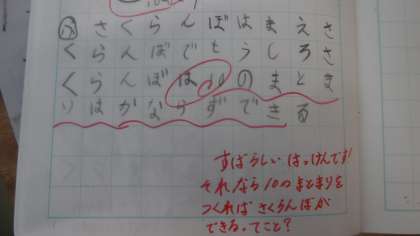 ふ さくらんぼはまえさ
くらんぼでもうしろさ
くらんぼは10のまとま
りはかならずできる
すばらしい はっけんです!
それなら10のまとまりを
つくれば さくらんぼが
できるってこと?